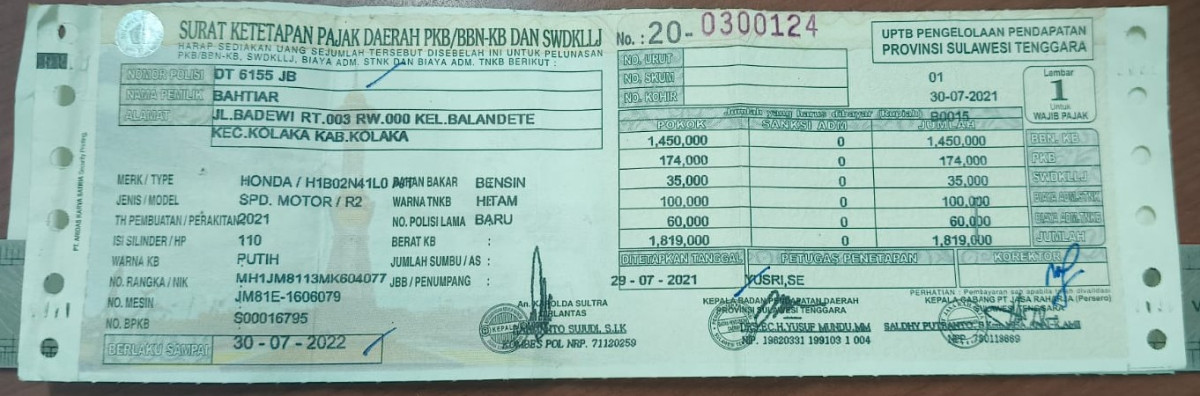 SURAT KETETAPAN PAJAK DAERAH PKB/BBN-KB DAN SWDKLLJ
HARAP SEDIAKAN UANG SEJUMLAH TERSEBUT DISEBELAH INI UNTUK PELUNASAN
PKB/BBN-KB, SWDKLLJ, BIAYA ADM. STNK DAN BIAYA ADM. TNKB BERIKUT :
No. : 20- 0300124
UPTB PENGELOLAAN PENDAPATAN
PROVINSI SULAWESI TENGGARA
NOMOR POLISI DT 6155 JB
NAMA PEMILIK BAHTIAR
ALAMAT JL.BADEWI RT.003 RW.000 KEL.BALANDETE
KEC.KOLAKA KAB.KOLAKA
NO. URUT
NO. SKUM 01
NO. KOHIR 30-07-2021
Lembar
1
Untuk
WAJIB PAJAK
Jumlah yang harus dibayar (Rupiah) B0015
POKOK SANKSI ADM JUMLAH
1,450,000 0 1,450,000 BBN. KB
174,000 0 174,000 PKB
35,000 0 35,000 SWDKLLJ
100,000 0 100,000 BIAYA ADM.STNK
60,000 0 60,000 BIAYA ADM.TNKB
1,819,000 0 1,819,000 JUMLAH
MERK / TYPE HONDA / H1B02N41L0 BAHAN BAKAR BENSIN
JENIS / MODEL SPD. MOTOR / R2 WARNA TNKB HITAM
TH PEMBUATAN / PERAKITAN 2021 NO. POLISI LAMA BARU
ISI SILINDER / HP 110 BERAT KB :
WARNA KB PUTIH JUMLAH SUMBU / AS :
NO. RANGKA / NIK MH1JM8113MK604077 JBB / PENUMPANG :
NO. MESIN JM81E-1606079
NO. BPKB S00016795
BERLAKU SAMPAI 30 - 07 - 2022
DITETAPKAN TANGGAL PETUGAS PENETAPAN KOREKTOR
29 - 07 - 2021 YUSRI,SE
PERHATIAN : Pembayaran sah apabila telah divalidasi
An. KAPOLDA SULTRA
DIRLANTAS
KOMBES POL NRP. 71120259
KEPALA BADAN PENDAPATAN DAERAH
PROVINSI SULAWESI TENGGARA
YUSUF MUNDU,MM
NIP. 19620331 199103 1 004
KEPALA CABANG PT JASA RAHARJA (Persero)
SULAWESI TENGGARA
NPP. 780119869
PT. ARIDAS KARYA SATRIA Security Printing